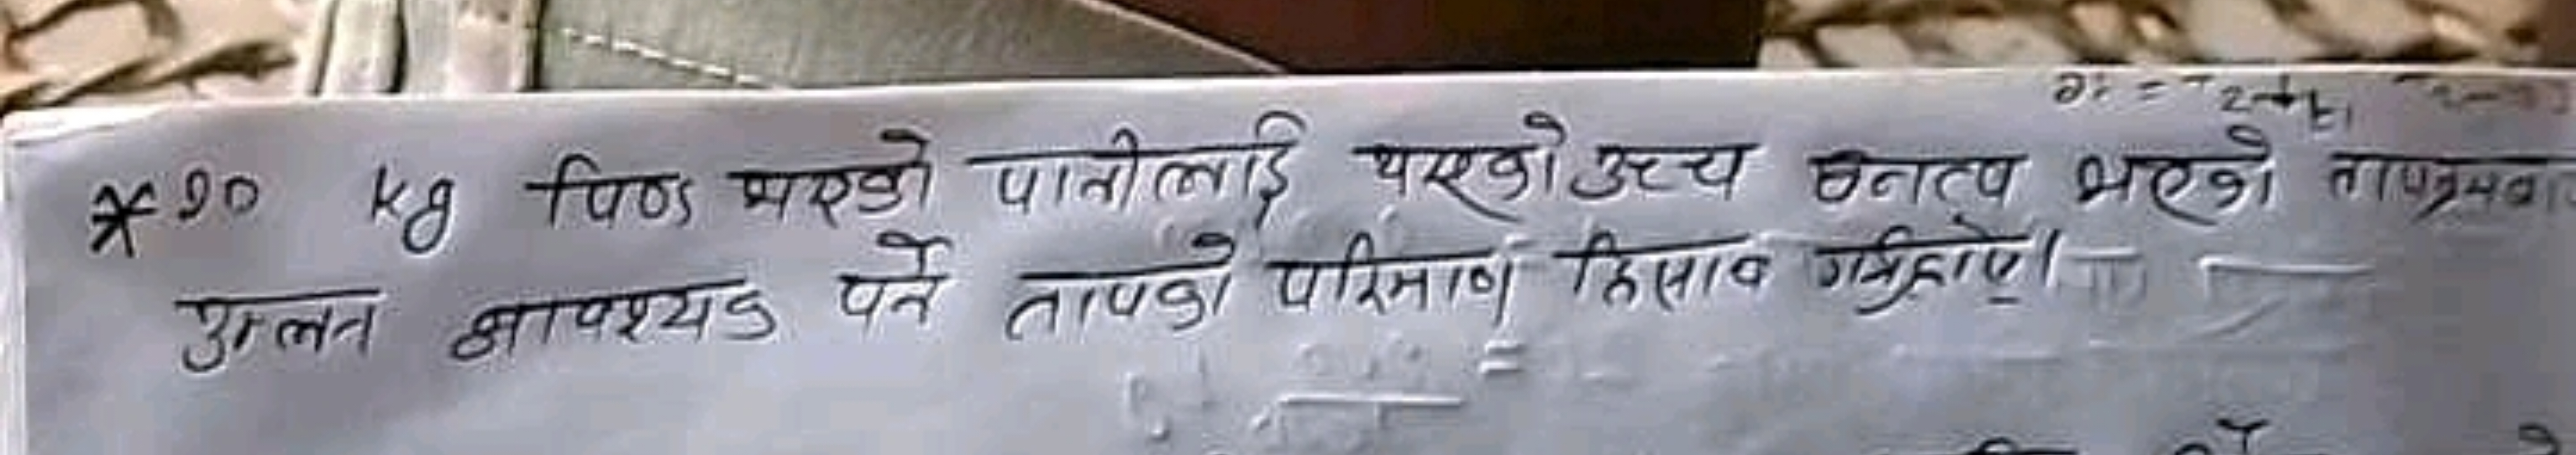 * १० kg पिण्ड भएको पानीलाई यसको उच्च घनत्व भएको तापक्रमबा
उम्लन आवश्यक पर्ने तापको परिमाण हिसाब गर्नुहोस्।